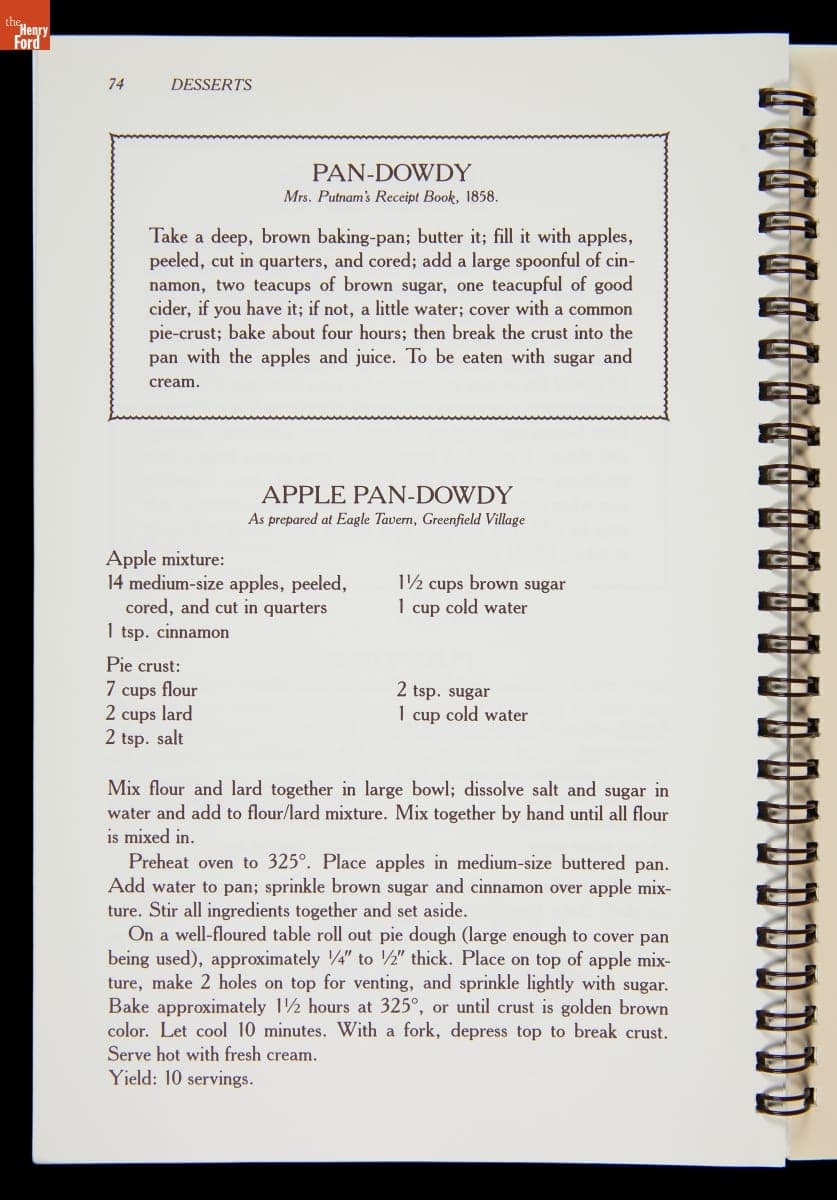 the
Henry
Ford
74 DESSERTS
PAN-DOWDY
Mrs. Putnam's Receipt Book, 1858.
Take a deep, brown baking-pan; butter it; fill it with apples,
peeled, cut in quarters, and cored; add a large spoonful of cin-
namon, two teacups of brown sugar, one teacupful of good
cider, if you have it; if not, a little water; cover with a common
pie-crust; bake about four hours; then break the crust into the
pan with the apples and juice. To be eaten with sugar and
cream.
APPLE PAN-DOWDY
As prepared at Eagle Tavern, Greenfield Village
Apple mixture:
14 medium-size apples, peeled,
cored, and cut in quarters
1 tsp. cinnamon
1½ cups brown sugar
1 cup cold water
Pie crust:
7 cups flour
2 cups lard
2 tsp. salt
2 tsp. sugar
1 cup cold water
Mix flour and lard together in large bowl; dissolve salt and sugar in
water and add to flour/lard mixture. Mix together by hand until all flour
is mixed in.
Preheat oven to 325°. Place apples in medium-size buttered pan.
Add water to pan; sprinkle brown sugar and cinnamon over apple mix-
ture. Stir all ingredients together and set aside.
On a well-floured table roll out pie dough (large enough to cover pan
being used), approximately ¼" to ½" thick. Place on top of apple mix-
ture, make 2 holes on top for venting, and sprinkle lightly with sugar.
Bake approximately 1½ hours at 325°, or until crust is golden brown
color. Let cool 10 minutes. With a fork, depress top to break crust.
Serve hot with fresh cream.
Yield: 10 servings.